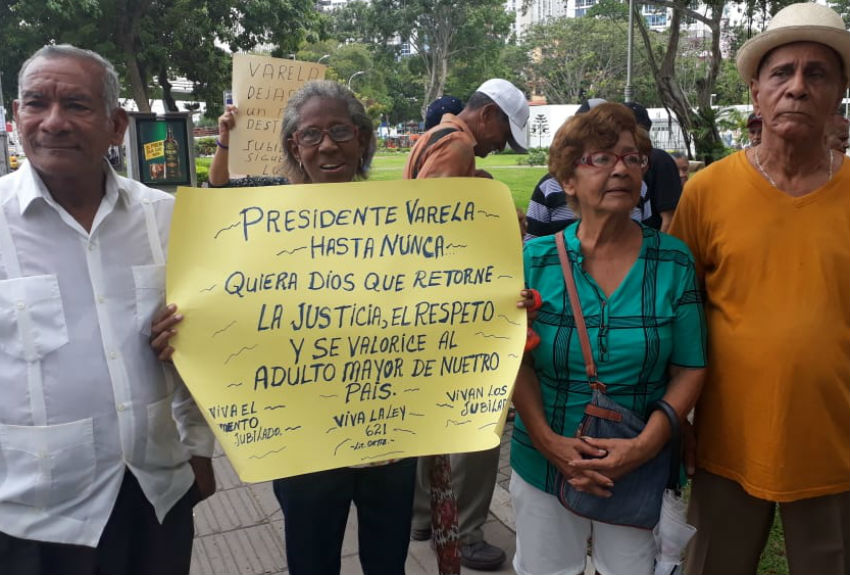 VARELA
DEJAS
PRESIDENTE VARELA
HASTA NUNCA...
QUIERA DIOS QUE RETORNE
LA JUSTICIA, EL RESPETO
Y SE VALORICE AL
ADULTO MAYOR DE NUETRO
PAÍS.
VIVA EL
JUBILADO.
VIVA LA LEY
621
VIVAN LOS
JUBILAD